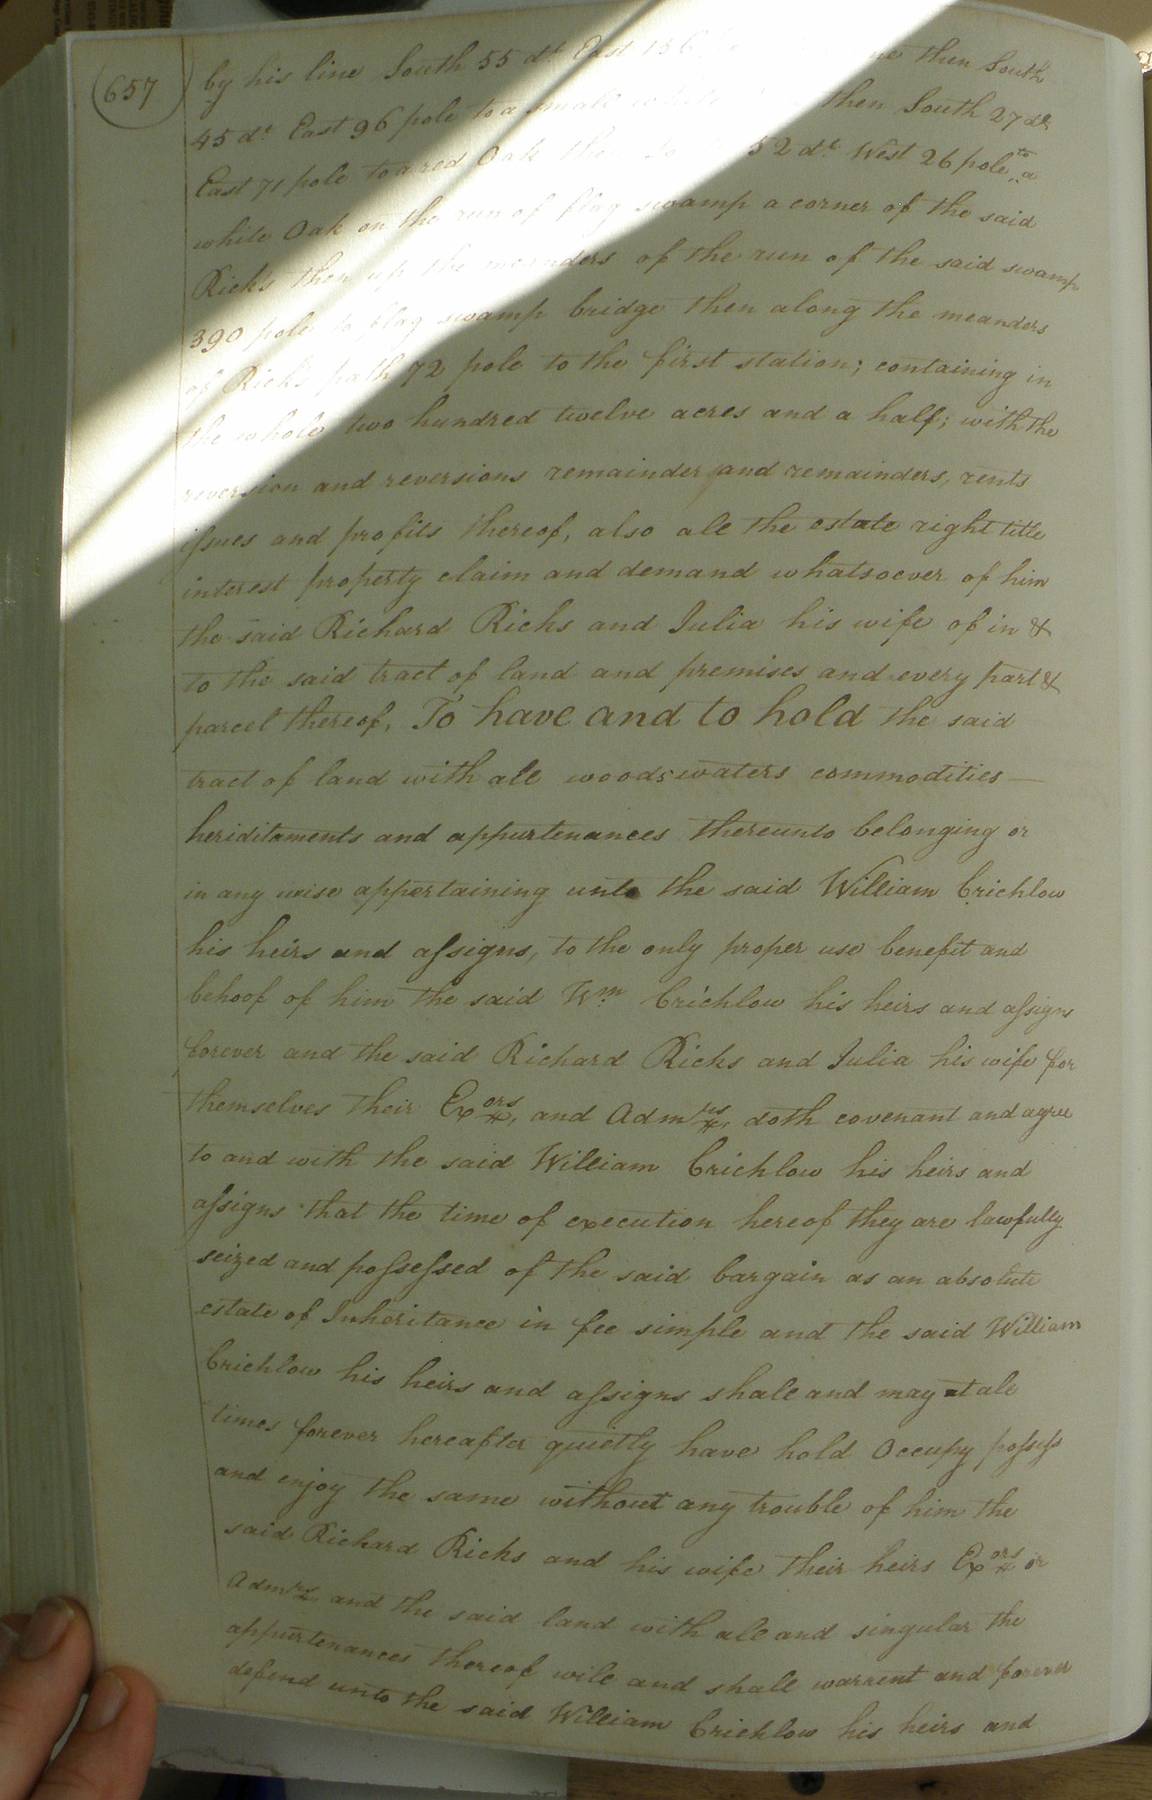 (657)
by his line South 55 dt. East 156 then South
45 dt. East 96 pole to a small white then South 27 dt
East 71 pole to a red Oak then South 52 dt. West 26 pole to a
white Oak on the run of flag swamp a corner of the said
Ricks then up the meanders of the run of the said swamp
390 pole to flag swamp bridge then along the meanders
of Rick's path 72 pole to the first station; containing in
the whole two hundred twelve acres and a half; with the
reversion and reversions remainder and remainders, rents
issues and profits thereof, also all the estate right title
interest property claim and demand whatsoever of him
the said Richard Ricks and Julia his wife of in &
to the said tract of land and premises and every part &
parcel thereof, To have and to hold the said
tract of land with all woods waters commodities —
heriditaments and appurtenances thereunto belonging or
in any wise appertaining unto the said William Crichlow
his heirs and assigns, to the only proper use benefit and
behoof of him the said Wm Crichlow his heirs and assigns
forever and the said Richard Ricks and Julia his wife for
themselves their Exors, and Admrs, doth covenant and agree
to and with the said William Crichlow his heirs and
assigns that the time of execution hereof they are lawfully
seized and possessed of the said bargain as an absolute
estate of Inheritance in fee simple and the said William
Crichlow his heirs and assigns shall and may at all
times forever hereafter quietly have hold Occupy possess
and enjoy the same without any trouble of him the
said Richard Ricks and his wife their heirs Exors or
Admrs and the said land with all and singular the
appurtenances thereof will and shall warrent and forever
defend unto the said William Crichlow his heirs and